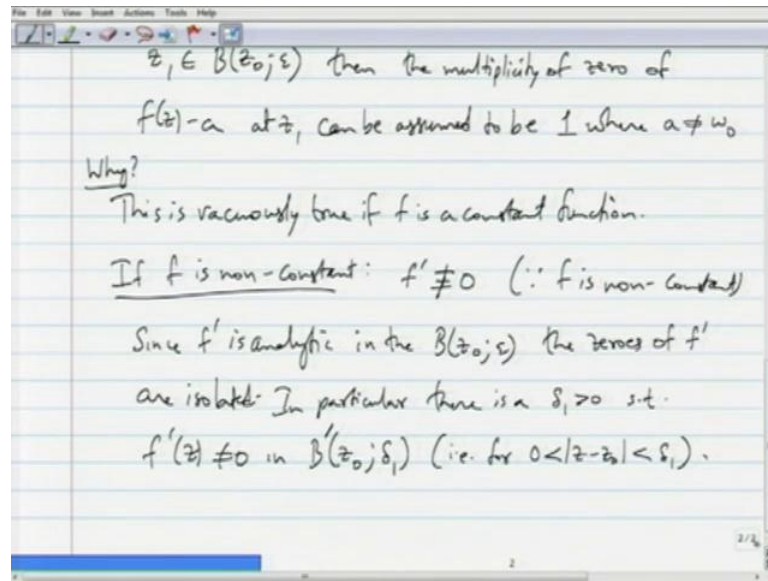 File Edit View Insert Actions Tools Help
z₁ ∈ B(z₀;ε) then the multiplicity of zero of
f(z)-a at z₁ can be assumed to be 1 where a ≠ w₀
Why?
This is vacuously true if f is a constant function.
If f is non-constant: f' ≢ 0 (∵ f is non-constant)
Since f' is analytic in the B(z₀;ε) the zeroes of f'
are isolated. In particular there is a δ₁>0 s.t.
f'(z) ≠0 in B'(z₀;δ₁) (i.e. for 0<|z-z₀|<δ₁).
2